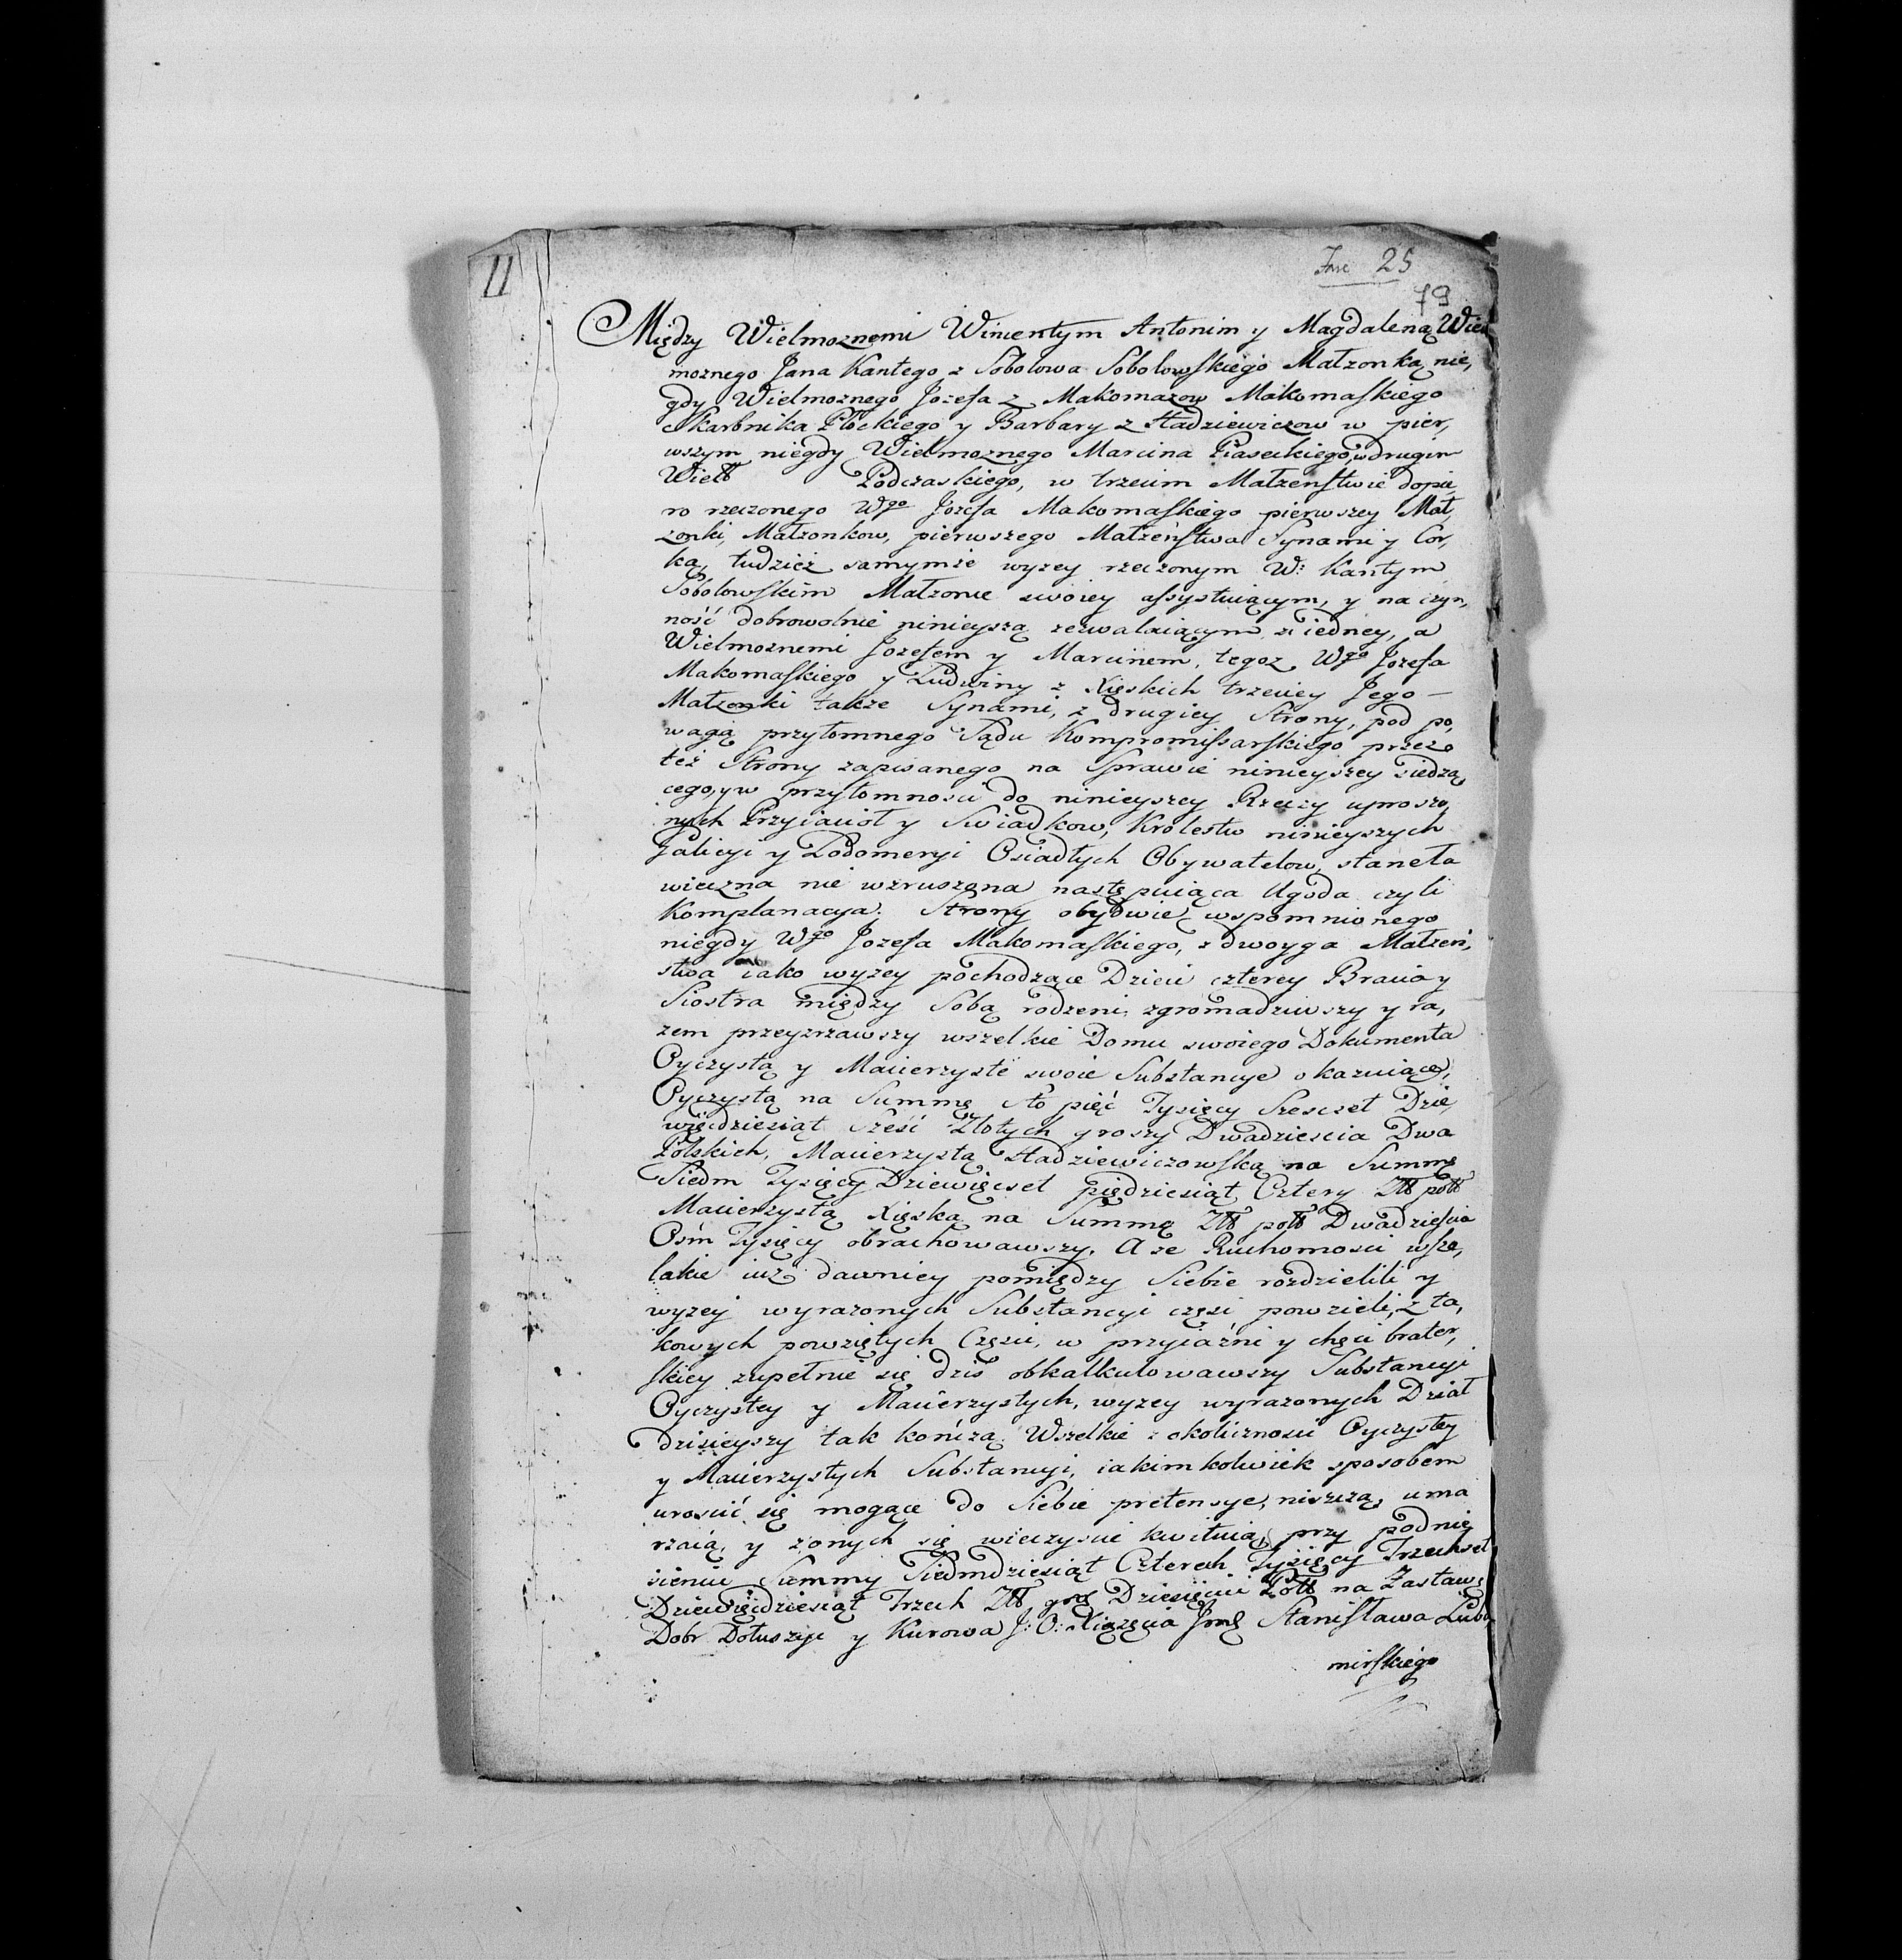 11
25
79
Między Wielmoznemi Wincentym Antonim y Magdaleną Wiel
moznego Jana Kantego z Sobolowa Sobolowskiego Małzonką, nie,
gdy Wielmoznego Jozefa z Makomazow Makomaskiego
Skarbnika Płockiego y Barbary z Stadziewiczow w pier,
wszym niegdy Wielmoznego Marcina Piaseckiego, w drugim
Podczaskiego, w trzecim Małzenstwie dopie,
ro rzeczonego Wgo Jozefa Makomaskiego pierwszey Mał,
zonki, Małzonkow, pierwszego Małzeństwa Synami y Cor,
ką, tudzież samymże wyzey rzeczonym W: Kantym
Sobolowskim Małzonce swoiey assystuiącym, y na czyn,
ność dobrowolnie ninieyszą zezwalaiącym z iedney, a
Wielmoznemi Jozefem y Marcinem, tegoz Wgo Jozefa
Makomaskiego y Ludwiny z Xięskich trzeciey Jego —
Małzonki także Synami, z drugiey Strony, pod po,
wagą przytomnego Sądu Kompromissarskiego przez
też Strony zapisanego na Sprawie ninieyszey siedzą,
cego, y w przytomnosci do ninieyszey Rzeczy uproszo,
nych Przyiacioł y Swiadkow, Krolestw ninieyszych
Galicyi y Lodomeryi Osiadłych Obywatelow, staneła
wieczna nie wzruszona następuiąca Ugoda czyli
Komplanacya. Strony obydwie wspomnionego
niegdy Wgo Jozefa Makomaskiego, z dwoyga Małzeń,
stwa iako wyzey pochodzące Dzieci czterey Bracia y
Siostra między Sobą rodzeni, zgromadziwszy y ra,
zem przeyzrzawszy wszelkie Domu swoiego Dokumenta
Oyczystą y Macierzyste swoie Substancye okazuiące,
Oyczystą na Summę sto pięć Tysięcy Szescset Dzie,
więcdziesiąt Sześć Złotych groszy Dwadziescia Dwa
Polskich, Macierzystą Stadziewiczowską na Summę
Siedm Tysięcy Dziewięcset pięcdziesiąt Cztery Zło pol
Macierzystą Xięską na Summę Zło pol Dwadziescia
Ośm Tysięcy obrachowawszy. A ze Ruchomosci wsze,
lakie iuż dawniey pomiędzy Siebie rozdzielili y
wyzey wyrazonych Substancyi częsci powzieli, z ta,
kowych powziętych Częsci, w przyiaźni y chęci brater,
skiey zupełnie się dziś obkalkulowawszy Substancyi
Oyczystey y Macierzystych, wyzey wyrazonych Dział
dzisieyszy tak kończą. Wszelkie z okolicznosci Oyczystey
y Macierzystych Substancyi, iakimkolwiek sposobem
urosić się mogące do Siebie pretensye, niszczą, uma
rzaią, y z onych się wieczyscie kwituią, przy podnie
sieniu Summy Siedmdziesiąt Czterech Tysięcy Trzechset
Dziewięcdziesiąt Trzech Zło gro Dziesięciu Pol na Zastawę
Dobr Dołuszyc y Kurowa J: O: Xiązęcia Jmć Stanisława Lubo,
mirskiego